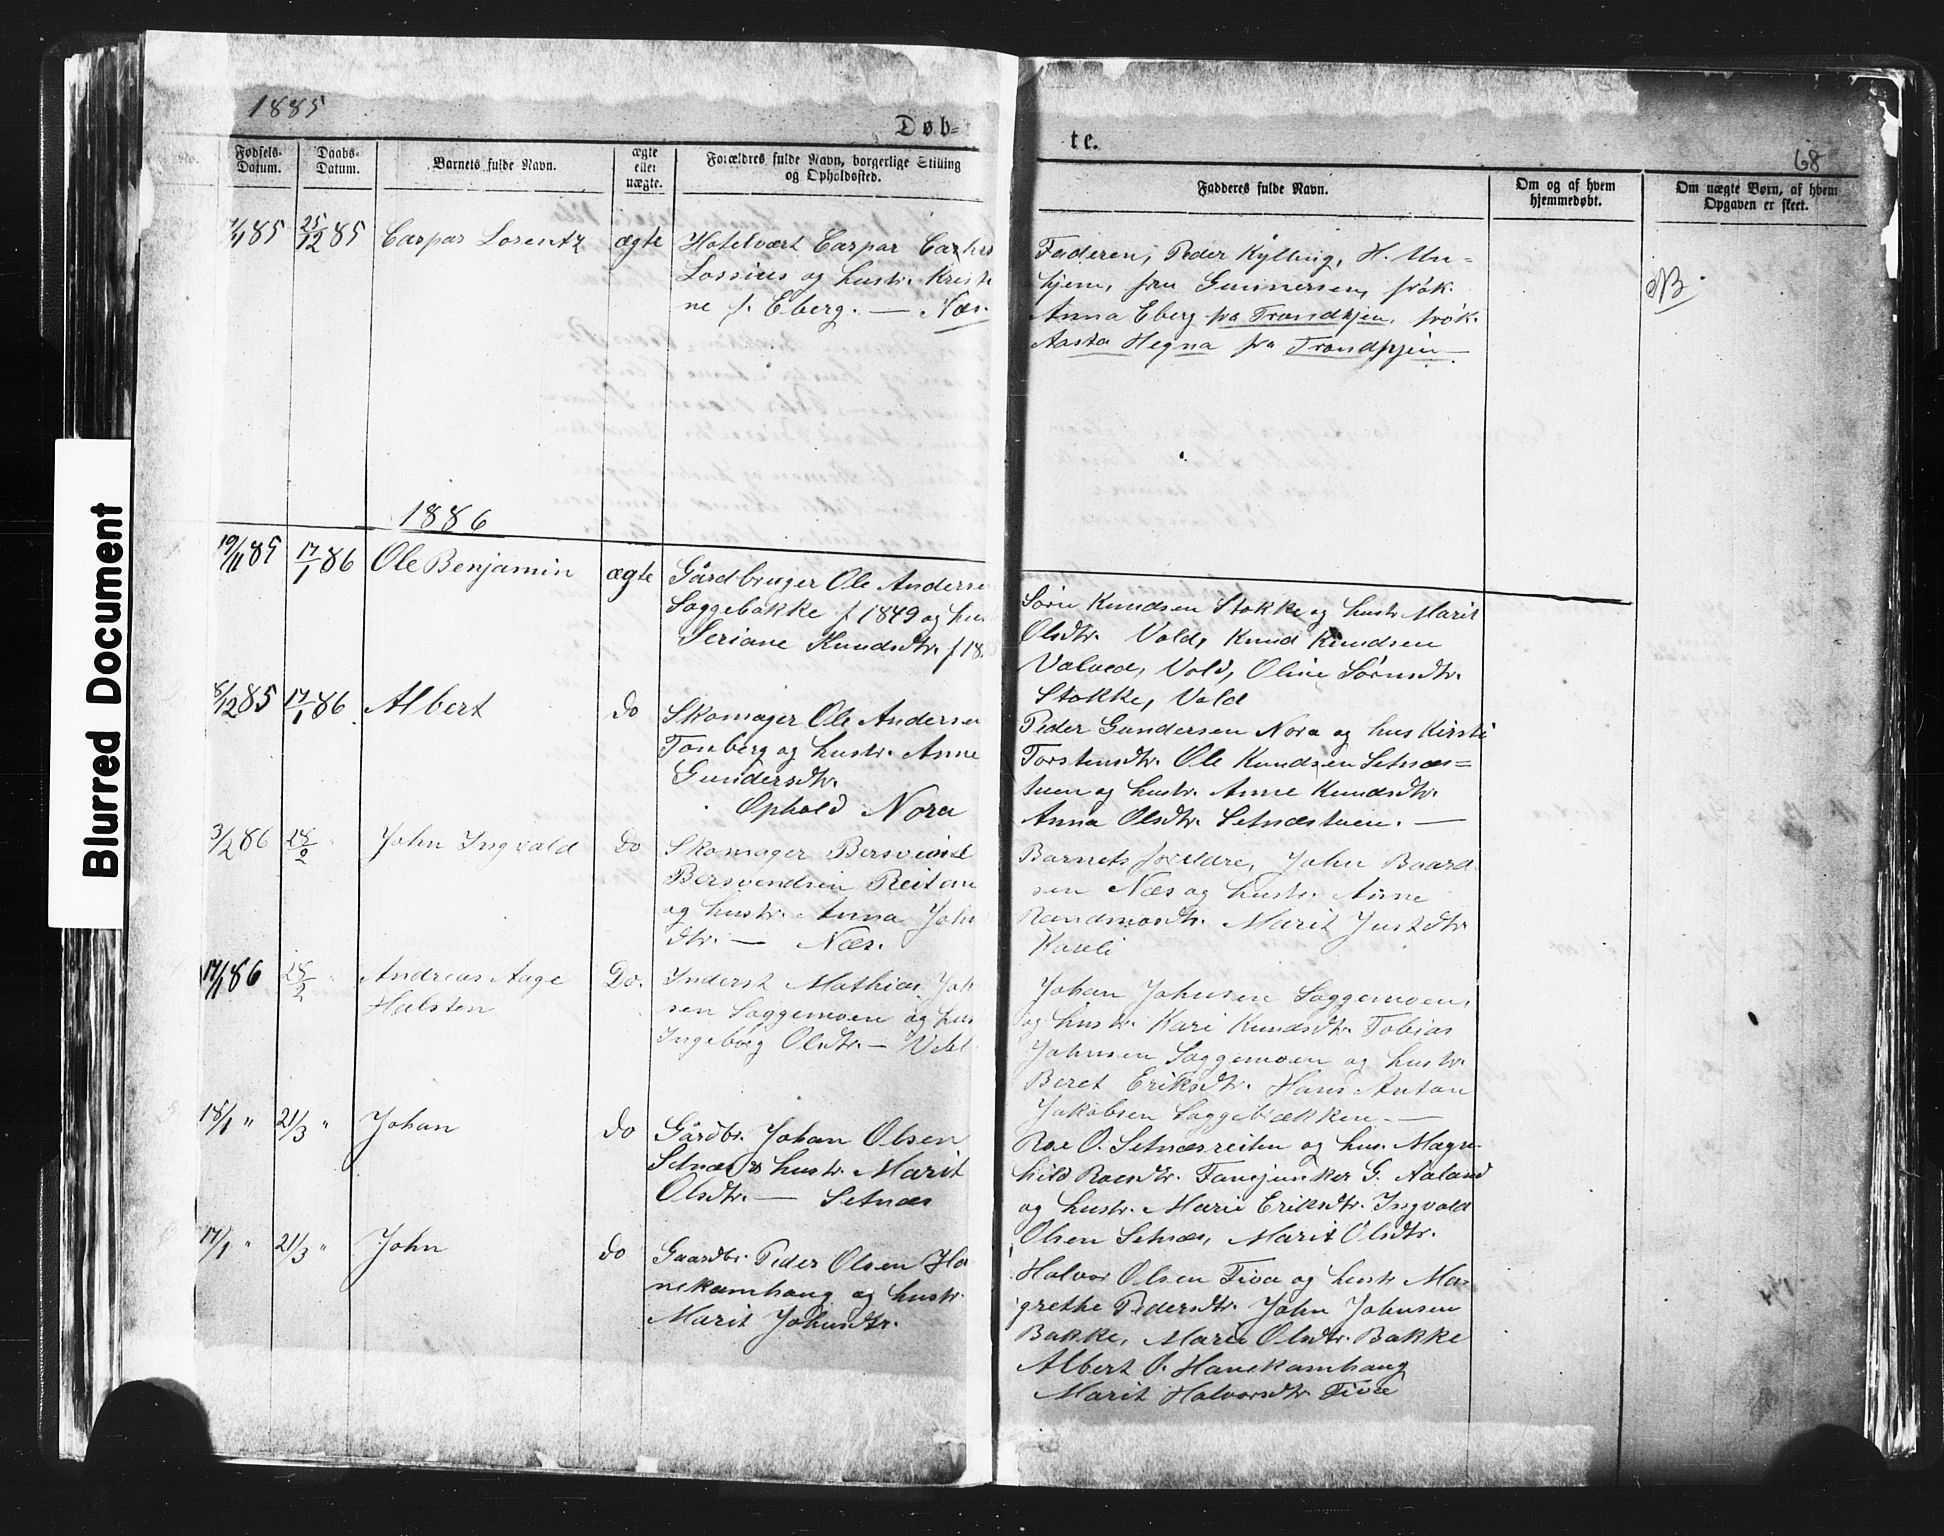 1885
Døb=
te.
68
Fødsels-
Datum.
Daabs-
Datum.
Barnets fulde Navn.
ægte
eller
uægte.
Forældres fulde Navn, borgerlige Stilling
og Opholdssted.
Fadderes fulde Navn.
Om og af hvem
hjemmedøbt.
Om uægte Børn, af hvem
Opgaven er skeet.
85 25/12 85 Caspar Lorentz ægte
Hotelvært Caspar
Lossius og hustr. Kristi
ne f. Eberg. — Næs.
Faderen, Peder Kylling, H. Un=
hjem, fru Gunnersen, frøk.
Anna Eberg fra Trondhjem, frøk.
Aasta Hegna fra Trondhjem —
NB
1886
19/11 85 17/1 86 Ole Benjamin ægte
Gårdbruger Ole Anderse
Saggebakke f 1849 og hus
Seriane Knudsdtr. f 18
Sørn Knudsen Stokke og hustr Marit
Olsdtr. Vold, Knud Knudsen
Vold, Oline Sørnsdtr.
Stokke, Vold
8/12 85 17/1 86 Albert do
Skomager Ole Anderse
Tonberg og hustr. Anne
Gundersdtr.
Ophold Nora
Peder Gundersen Nora og hus Kirsti
Torstensdtr. Ole Knudsen Setnæs=
tuen og hustr. Anne Knudsdtr.
Anna Olsdtr. Setnæstuen. —
3/2 86 28/2 " John Ingvald do
Skomager Bersvend
Bersvendsen Reitan
og hustr. Anna John
dtr. — Næs.
Barnets foreldre, John Baard
sen Næs og hustr. Anne
Marit Justdtr
Kareli
17/1 86 28/2 " Andreas Aage Do.
Halsten
Inderst Mathias Joh
sen Saggemoen og hus
Ingeborg Olsdtr. —
Johan Johnsen Saggemoen,
og hustr. Kari Knudsdtr. Tobias
Johnsen Saggemoen og hustr.
Beret Eriksdtr. Hans Anton
Jakobsen Saggebækken —
18/1 " 21/3 " Johan do
Gårdbr. Johan Olsen
Setnæs & hustr. Marit
Olsdtr. — Setnæs
Roe O. Setnæsreiten og hus. Magn=
hild Roesdtr. Fanejunker G. Aaland
og hustr. Marie Eriksdtr. Ingvald
Olsen Setnæs, Marit Olsdtr.
17/1 " 21/3 " John do
Gaardbr. Peder Olsen Ha
nekamhaug og hustr.
Marit Johnsdtr.
Halvor Olsen Fiva og hustr Ma=
grethe Pedersdtr. John Johnsen
Bakke, Marie Olsdtr. Bakke
Albert O. Hanekamhaug
Marit Halvorsdtr Fiva
Blurred Document